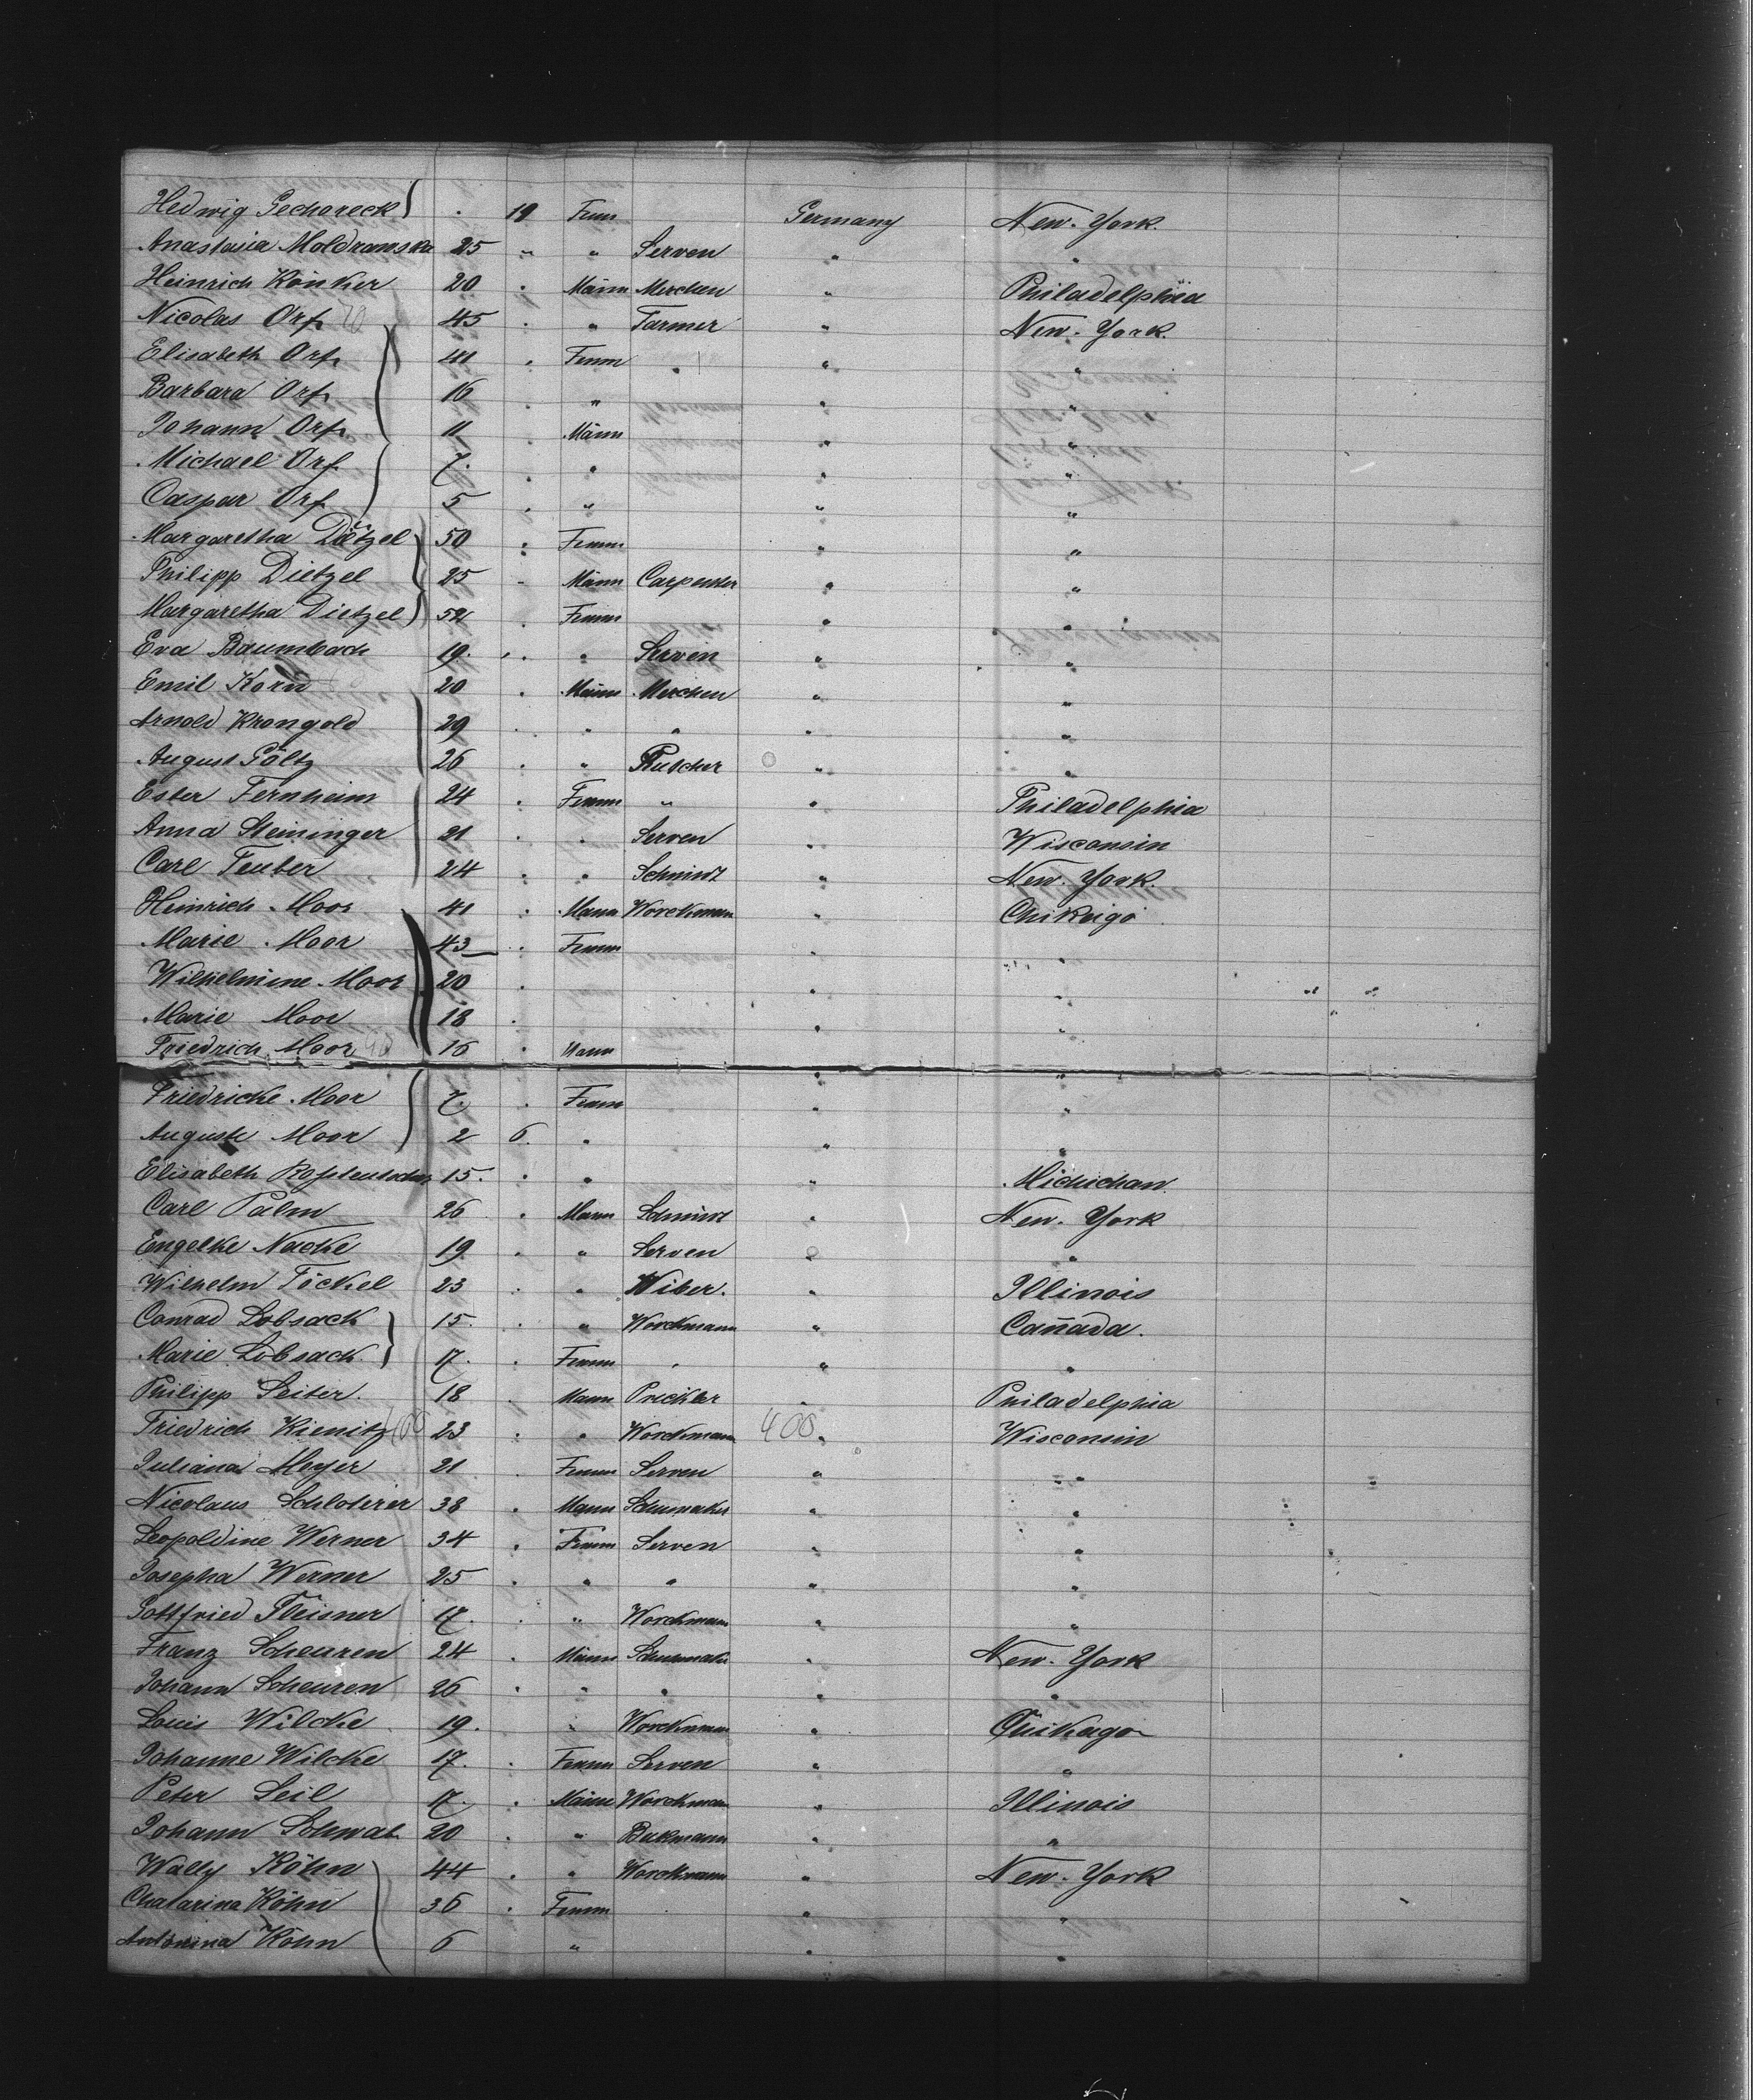 Hedwig Gechareck . 19 Fem Germany New-York.
Anastasia Moldramska 25 " " Serven " "
Heinrich Könker 20 " Männ Merchen " Philadelphia
Nicolas Orf 45 " " Farmer " New-York.
Elisabeth Orf 41 " Femm " " "
Barbara Orf 16 " " " "
Johann Orf 11 Männ " "
Michael Orf 7. " " " "
Caspar Orf 5 " " " "
Margaretha Dietzel 50 " Femm " "
Philipp Dietzel 25 " Männ Carpenter " "
Margaretha Dietzel 52 " Femm " "
Eva Baumbach 19. " " Serven " "
Emil Korn 20 " Männ Merchen " "
Arnold Krongold 29 " " " " "
August Pöltz 26 " " Butcher " "
Ester Fernheim 24 " Femm " " Philadelphia
Anna Steininger 21 " " Serven " Wisconsin
Carl Teuber 24 " " Schmidt " New-York.
Heinrich Moor 41 " Mann Worckmann " Chikaigo
Marie Moor 43 " Femm " "
Wilhelmine Moor 20 " " "
Marie Moor 18 " " "
Friedrich Moor 16 " Mann " "
Friedricke Moor 7. " Femm " "
Auguste Moor 2 6. " " "
Elisabeth 15. " " " Michichan
Carl Palm 26 " Mann Schmidt " New-York
Engelke Nacke 19 " " Serven " "
Wilhelm Töckel 23 " " Wiber. " Illinois
Conrad Lobsack 15. " " Worckmann " Canada.
Marie Lobsack 17. " Femm " " "
Philipp Seiter. 18 " Mann Prickler " Philadelphia
Friedrich Kienitz 23 " " Worckmann 400 " Wisconsin
Juliana Meyer 21 " Femm Serven " "
Nicolaus Schloterer 38 " Mann Schumaker " "
Leopoldine Werner 34 " Femm Serven " "
Josepha Werner 25 " " " " "
Gottfried Fleisner 17. " " Worckmann " "
Franz Scheuren 24 " Männ Schumaker " New-York
Johann Scheuren 26 " " " " "
Louis Wilcke 19. " Worckmann " Chikago
Johanne Wilcke 17. " Femm Serven " "
Peter Seil 17. " Männ Worckmann " Illinois
Johann Schwab 20 " " Bakmann " "
Wally Köhn 44 " " Worckmann " New-York
Chatarina Köhn 36 " Femm " "
Antonina Köhn 6 " " "